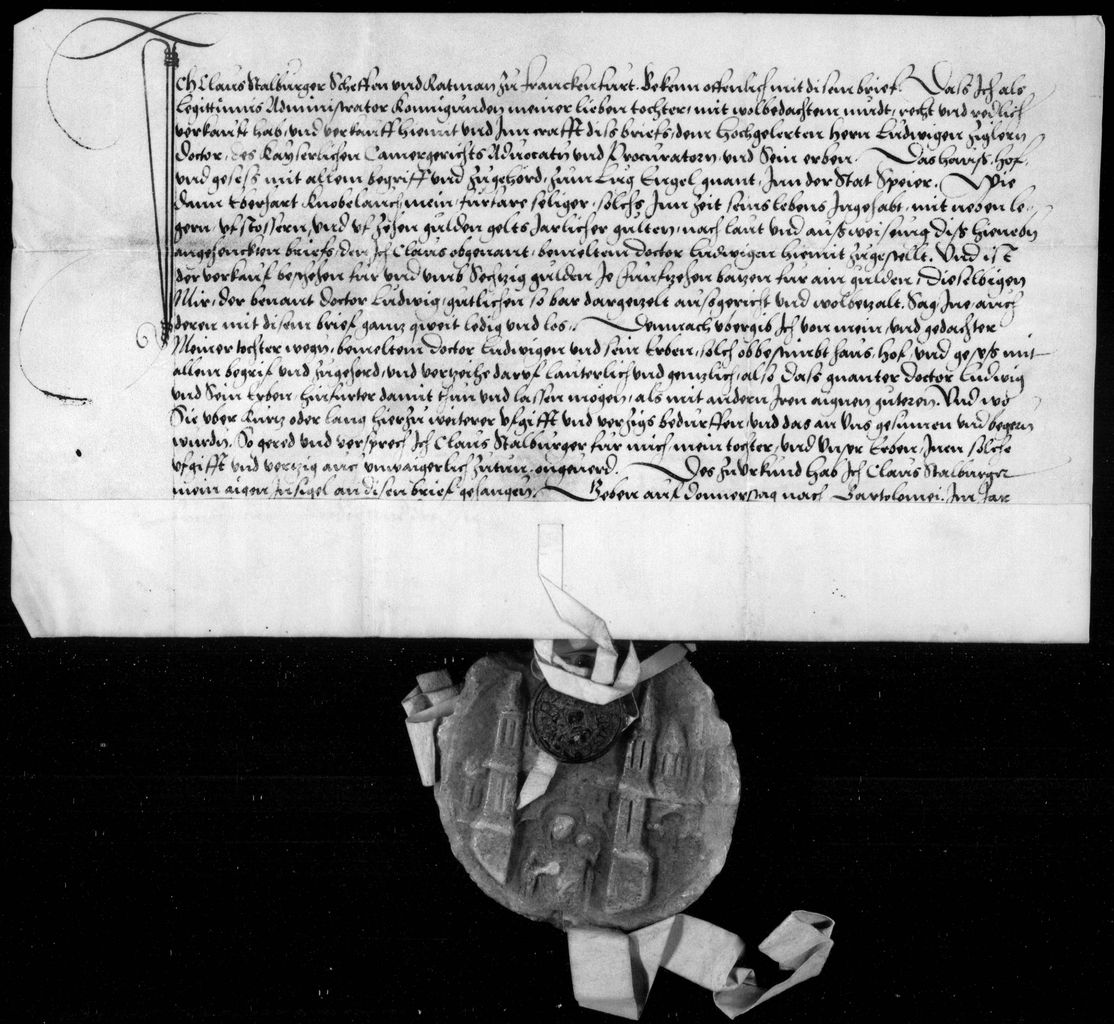 Ich Claus Stalburger Scheffen vnd Ratman zu Franckenfurt. Beken offenlich mit disem brief. Dass Jch als
legittimus Administrator Konnigunden meiner lieben tochter, mit wolbedachtem mudt, recht vnd redlich
verkaufft hab, vnd verkauff hiemit vnd Jnn crafft diss briefs, dem Hochgelerten Hern Ludwigen Ziglern
Doctor, des Kayserlichen Camergerichts Aduocatn vnd Procuratorn, vnd Sein erben. Das hauss, hof,
vnd gesess mit allem begriff vnd zugehord, zum Lug Engel gnant, Jnn der Stat Speier. Wie
dann Eberhart Knobelauch mein furfare seliger, solchs Jnn zeit seins lebens Jngehabt, mit neben le-
gern, vf stossern, vnd vf zehen gulden gelts Jarlicher gulten, nach laut vnd aussweisung diss hieneben
angehenckten briefs, den Jch Claus obgenant, bemeltem doctor Ludwigen hiemit zugestellt. Vnd ist
der verkauf beschehen fur vnd vmb Sechzig gulden Je funffzehen batzen fur ain gulden, Dieselbigen
Mir, der benant Doctor Ludwig, gutlichen so bar dargezelt aussgericht vnd wolbezalt. Sag Jne auch
deren mit disem brief gantz queit ledig vnd los. Demnach vbergib Jch von mein, vnd gedachter
Meiner tochter wegn, bemeltem doctor Ludwigen vnd sein Erben, solch obbestimbt haus, hof, vnd gesess mit
allem begrif vnd zugehord, vnd verzeihe daruf lauterlich vnd gentzlich, also dass gnanter doctor Ludwig
vnd Sein Erben, hinfurter damit thun vnd lassen mögen, als mit andern Jren aignen guteren. Vnd wo
Sie vber kurtz oder lang hierzu weiterer vfgifft vnd verzigs bedurffen, vnd das an Vns gesinnen vnd begern
wurdn. So gered vnd versprech Jch Claus Stalburger fur mich, mein tochter, vnd Vnser Erben, Jnen solche
vfgifft vnd verzig auch vnwaigerlich zutun, ongeuerd. Des zu Vrkund hab Jch Claus Stalburger
mein aigen Jnsigel an disen brief gehangen. Geben auf Donnerstag nach Bartolomei. Jm Jar